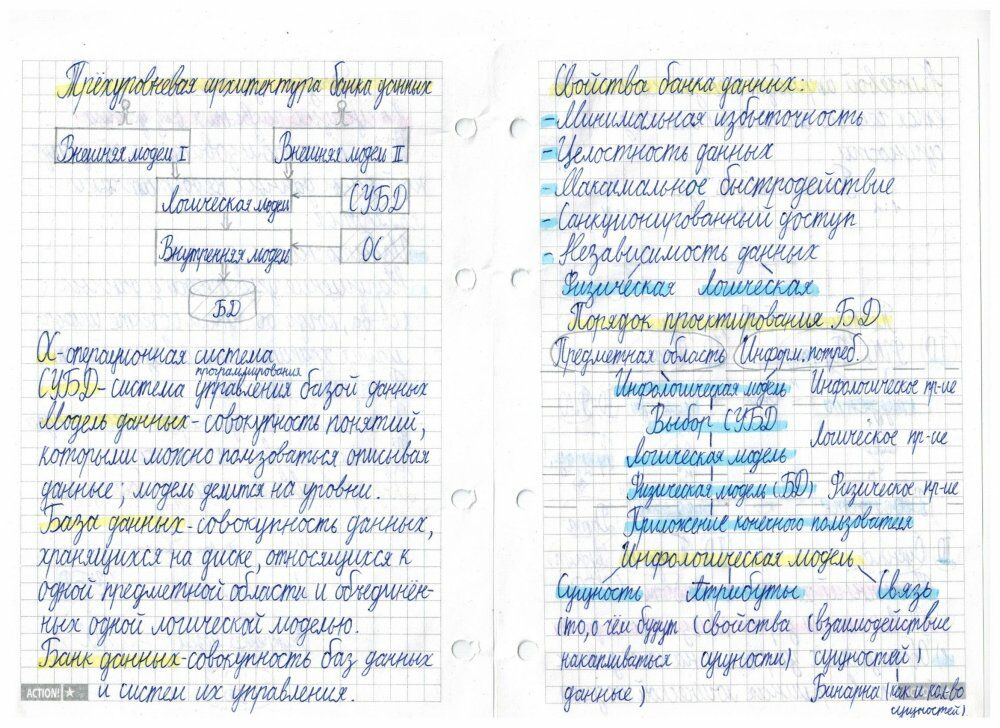 Трёхуровневая архитектура банка данных
Внешняя модель I
Внешняя модель II
Логическая модель
СУБД
Внутренняя модель
ОС
БД
ОС-операционная система
программирования
СУБД-система управления базой данных
Модель данных-совокупность понятий,
которыми можно пользоваться описывая
данные; модель делится на уровни.
База данных-совокупность данных,
хранящихся на диске, относящихся к
одной предметной области и объединён-
ных одной логической моделью.
Банк данных-совокупность баз данных
и систем их управления.
ACTION!
Свойства банка данных:
-Минимальная избыточность
-Целостность данных
-Максимальное быстродействие
-Санкционированный доступ
-Независимость данных
Физическая Логическая
Порядок проектирования БД
Предметная область Информ. потреб.
Инфологическая модель Инфологическое пр-ие
Выбор СУБД
Логическое пр-ие
Логическая модель
Физическая модель (БД) Физическое пр-ие
Приложение конечного пользователя
Инфологическая модель
Сущность Атрибуты Связь
(то, о чём будут (свойства (взаимодействие
накапливаться сущности) сущностей)
данные) Бинарна (как и кол-во
сущностей)